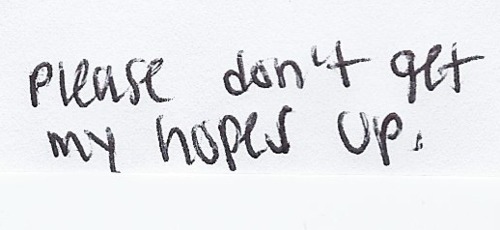 please don't get
my hopes up.